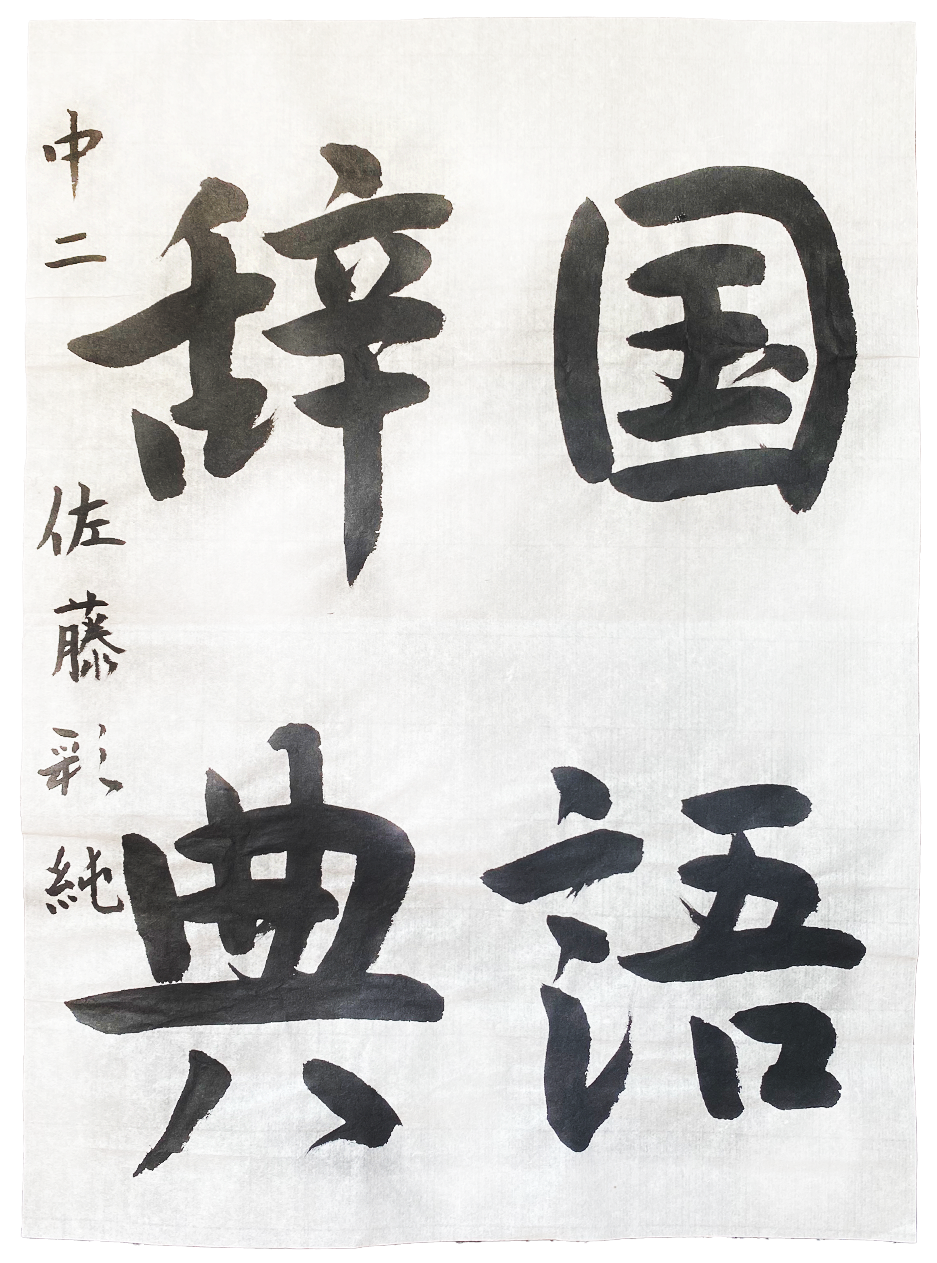 国語
辞典
中二 佐藤彩純